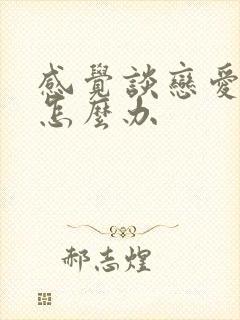 感覺談戀愛
怎麼办
郝志煌